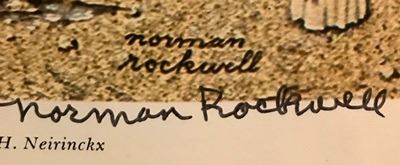 norman
rockwell
Norman Rockwell
H. Neirinckx